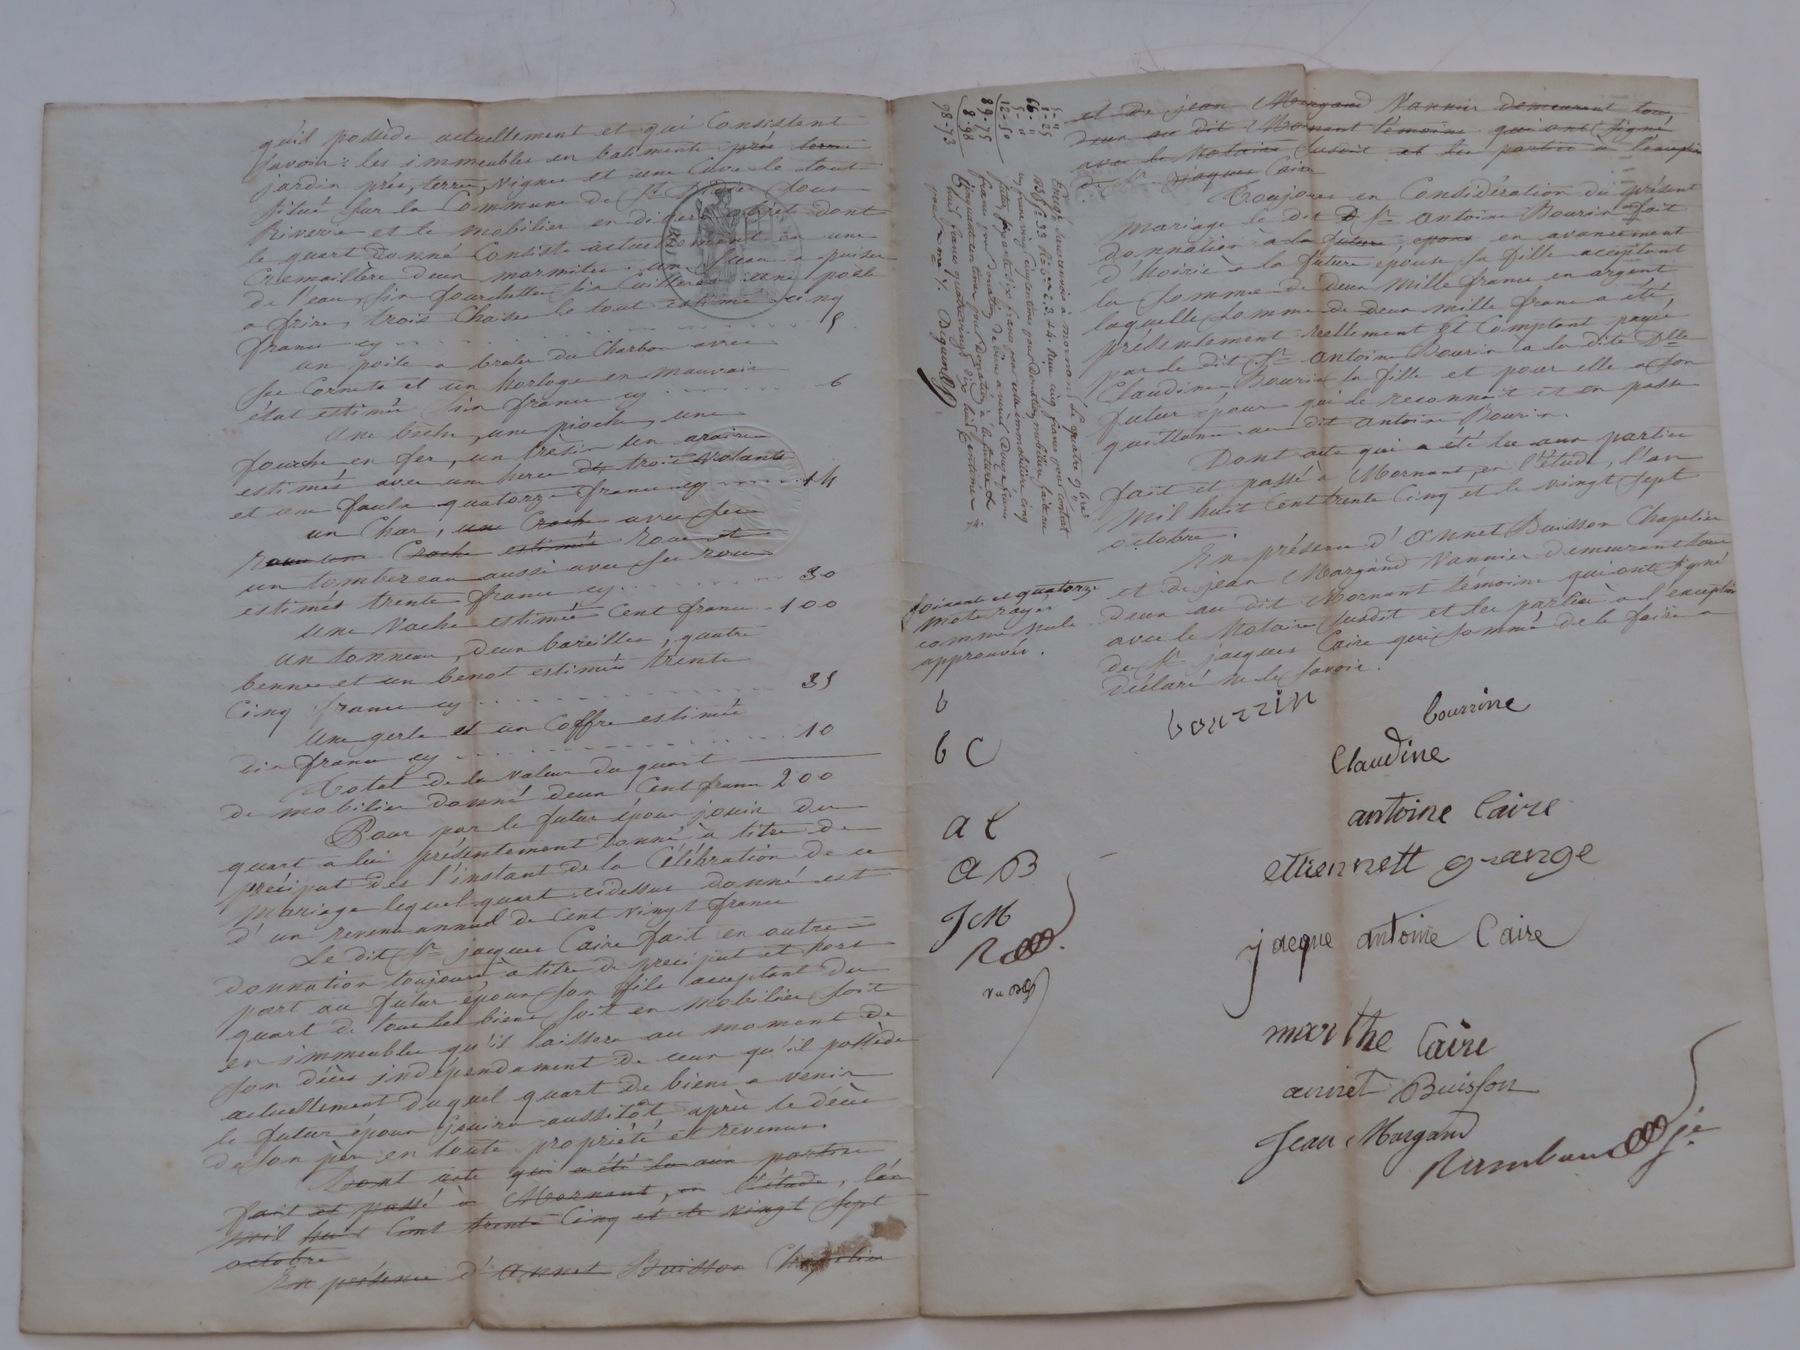 qu'il possède actuellement et qui Consistent
savoir : les immeubles en batiments près terre
jardin prés, terre, vignes et une Cave le tout
situé sur la Commune de St Didier sous
Riverie et le mobilier en divers objet dont
le quart donné Consiste actuellement en une
Cremaillère deux marmites un seau a puiser
de l'eau, six fourchettes six Cuilleres une poële
a frire, trois Chaises le tout estimé cinq
francs cy 5
un poile a bruler du Charbon avec
ses Cornets et un horloge en mauvais
état estimés six francs cy 6
Une bèche, une pioche, une
fourche en fer, un trétin un araire
estimés avec un herce de trois volants
et une faulx quatorze francs cy 14
un Char, un Croche avec ses
roues un Croche estimés roues et
un tombereau aussi avec ses roues
estimés trente francs cy 30
Une Vache estimée Cent francs 100
un tonneau, deux bareilles, quatre
bennes et un benot estimés trente
Cinq francs cy 35
Une gerle et un Coffre estimés
dix francs cy 10
Total de la valeur du quart
de mobilier donné deux Cent francs 200
Pour par le futur époux jouir du
quart a lui présentement donné à titre de
préciput des l'instant de la Célébration de ce
mariage lequel quart cidessus donné est
d'un revenu annuel de Cent vingt francs
Le dit Sr jacques Caire fait en outre
donnation toujours à titre de preciput et hors
part au futur époux son fils acceptant du
quart de tous les biens soit en mobilier soit
en immeubles qu'il laissera au moment de
son décès indépendament de ceux qu'il possède
actuellement duquel quart de biens a venir
le futur époux jouira aussitôt après le décès
de son père en toute propriété et revenus.
Dont acte qui a été lu aux parties
fait et passé à Mornant, en l'étude, l'an
mil huit Cent trente Cinq et le vingt sept
octobre
En présence d'Annet Buisson Chapelier
et de jean Margand Vannier demeurant tous
deux au dit Mornant témoins qui ont signé
avec le Notaire susdit et les parties a l'exception
de Sr jacques Caire
Toujours en Considération du présent
mariage le dit Sr Antoine Bourin fait
donnation à la future epouse en avancement
d'hoirie à la future epouse sa fille aceptant
la somme de deux mille francs en argent
laquelle somme de deux mille francs a été
présentement reellement et Comptant payée
par le dit Sr antoine Bourin a la dite Dlle
Claudine Bourin sa fille et pour elle a son
futur époux qui le reconnait et en passe
quittance au dit antoine Bourin.
Dont acte qui a été lu aux parties
fait et passé à Mornant, en l'étude, l'an
mil huit Cent trente Cinq et le vingt sept
octobre.
En présence d'Annet Buisson Chapelier
et de jean Margand Vannier demeurant tous
deux au dit Mornant témoins qui ont signé
avec le Notaire susdit et les parties a l'exception
de Sr jacques Caire qui sommé de le faire a
déclaré ne le savoir.
5-"
1-25
66-"
5-"
12-50
89-75
8-98
98-73
soixante et quatorze
mots rayés
comme nuls
approuvés.
b
b C
a C
a B
J M
bourrin
bourrine
Claudine
antoine Caire
etiennett grange
jacque antoine Caire
marthe Caire
annet Buisson
Jean Margand